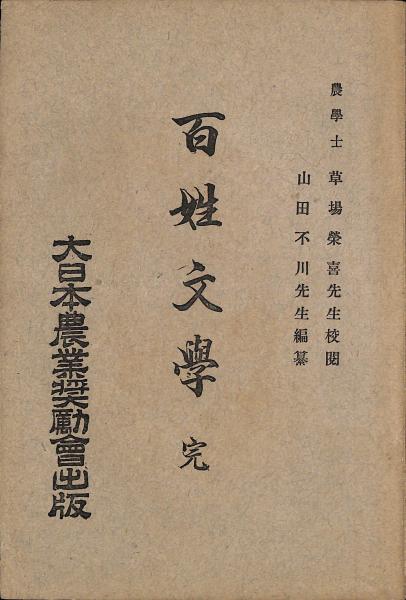 農學士 草場榮喜先生校閱
山田不川先生編纂
百姓文學 完
大日本農業奬勵會出版